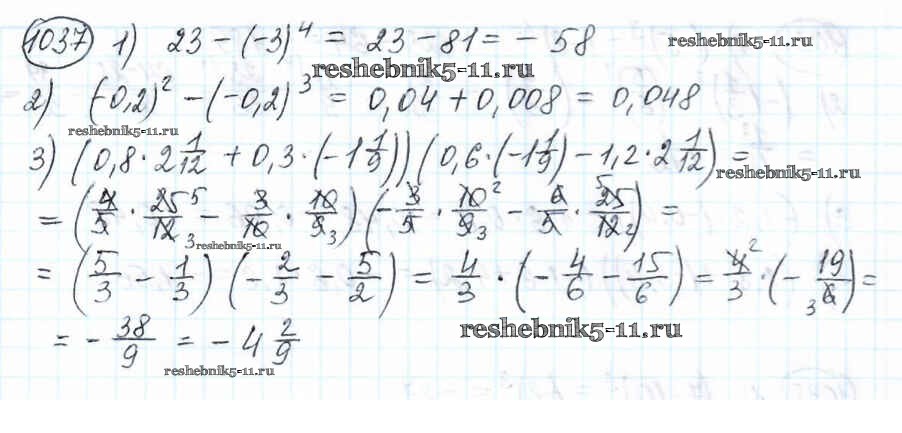 1037 1) 23 - (-3)^4 = 23 - 81 = - 58 reshebnik5-11.ru
reshebnik5-11.ru
2) (-0,2)^2 - (-0,2)^3 = 0,04 + 0,008 = 0,048
reshebnik5-11.ru
3) (0,8 · 2 1/12 + 0,3 · (-1 1/9)) (0,6 · (-1 1/9) - 1,2 · 2 1/12) =
reshebnik5-11.ru
= (4/5 · 25 5/12 3 - 3/10 · 10/9 3) (- 3/5 · 10 2/9 3 - 6/5 · 5 25/12 2) =
reshebnik5-11.ru
= (5/3 - 1/3) (- 2/3 - 5/2) = 4/3 · (- 4/6 - 15/6) = 4 2/3 · (- 19/3 6) =
reshebnik5-11.ru
= - 38/9 = - 4 2/9
reshebnik5-11.ru